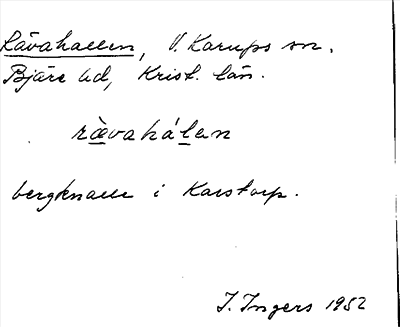 Rävahallen, V. Karups sn.
Bjäre hd, Krist. län.
rävahálen
bergknalle i Karstorp.
I. Ingers 1952